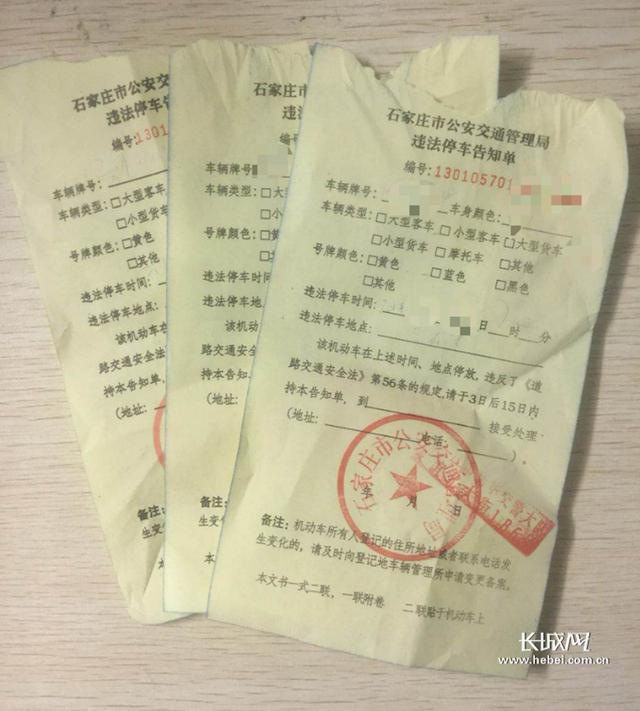 石家庄市公安交
违法停车告
编号:1301
车辆牌号:
车辆类型:□大型客车
□小型货车
号牌颜色:□黄色
□其他
违法停车时间:
违法停车地点:
该机动车在
路交通安全法》
持本告知单,
(地址:
备注:
生变化的
本
石家庄市
违法停
编号:
车辆牌号:
车辆类型:□大型
□小
号牌颜色:□黄
□其
违法停车时间
违法停车地
该机动车
路交通安
持本告知
(地址:
备注:
生变
本文
石家庄市公安交通管理局
违法停车告知单
编号:130105701
车辆牌号: 车身颜色:
车辆类型:□大型客车 □小型客车 □大型货车
□小型货车 □摩托车 □其他
号牌颜色:□黄色 □蓝色 □黑色
□其他
违法停车时间: 日 时 分
违法停车地点:
该机动车在上述时间、地点停放,违反了《道
路交通安全法》第56条的规定,请于3日后15日内
持本告知单,到 接受处理
(地址: 电话: )。
石家庄市公安交通管理局
年 月 日
备注:机动车所有人登记的住所地址或者联系电话发
生变化的,请及时向登记地车辆管理所申请变更备案。
本文书一式二联,一联附卷 二联贴于机动车上
长城网
www.hebei.com.cn